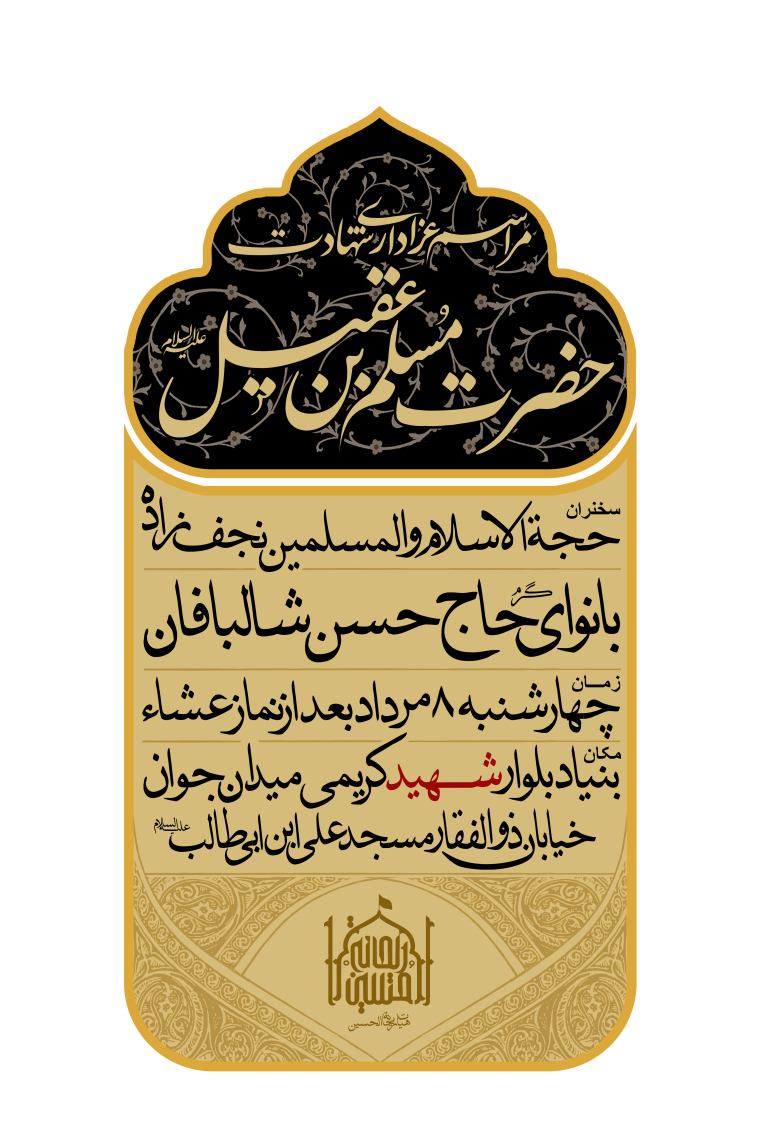 مراسم عزاداری شهادت
حضرت مسلم بن عقیل علیه‌السلام
سخنران
حجة الاسلام والمسلمین نجف زاده
بانوای گرم حاج حسن شالبافان
زمان
چهارشنبه ۸ مرداد بعد از نماز عشاء
مکان
بنیاد بلوار شهید کریمی میدان جوان
خیابان ذوالفقار مسجد علی ابن ابی طالب علیه‌السلام
ریحانة الحسین
هیات ریحانة الحسین